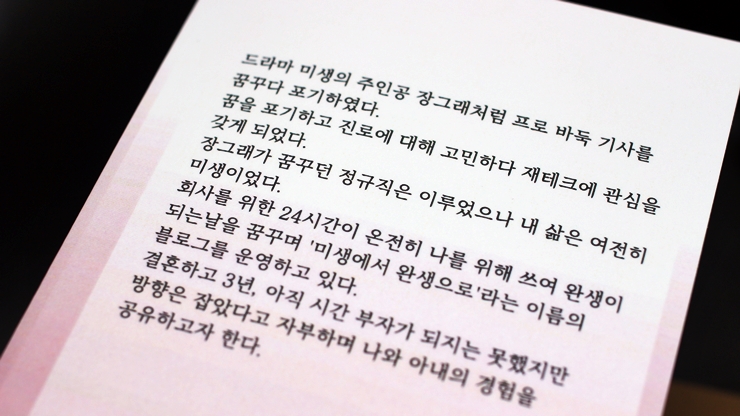 드라마 미생의 주인공 장그래처럼 프로 바둑 기사를
꿈꾸다 포기하였다.
꿈을 포기하고 진로에 대해 고민하다 재테크에 관심을
갖게 되었다.
장그래가 꿈꾸던 정규직은 이루었으나 내 삶은 여전히
미생이었다.
회사를 위한 24시간이 온전히 나를 위해 쓰여 완생이
되는날을 꿈꾸며 '미생에서 완생으로'라는 이름의
블로그를 운영하고 있다.
결혼하고 3년, 아직 시간 부자가 되지는 못했지만
방향은 잡았다고 자부하며 나와 아내의 경험을
공유하고자 한다.